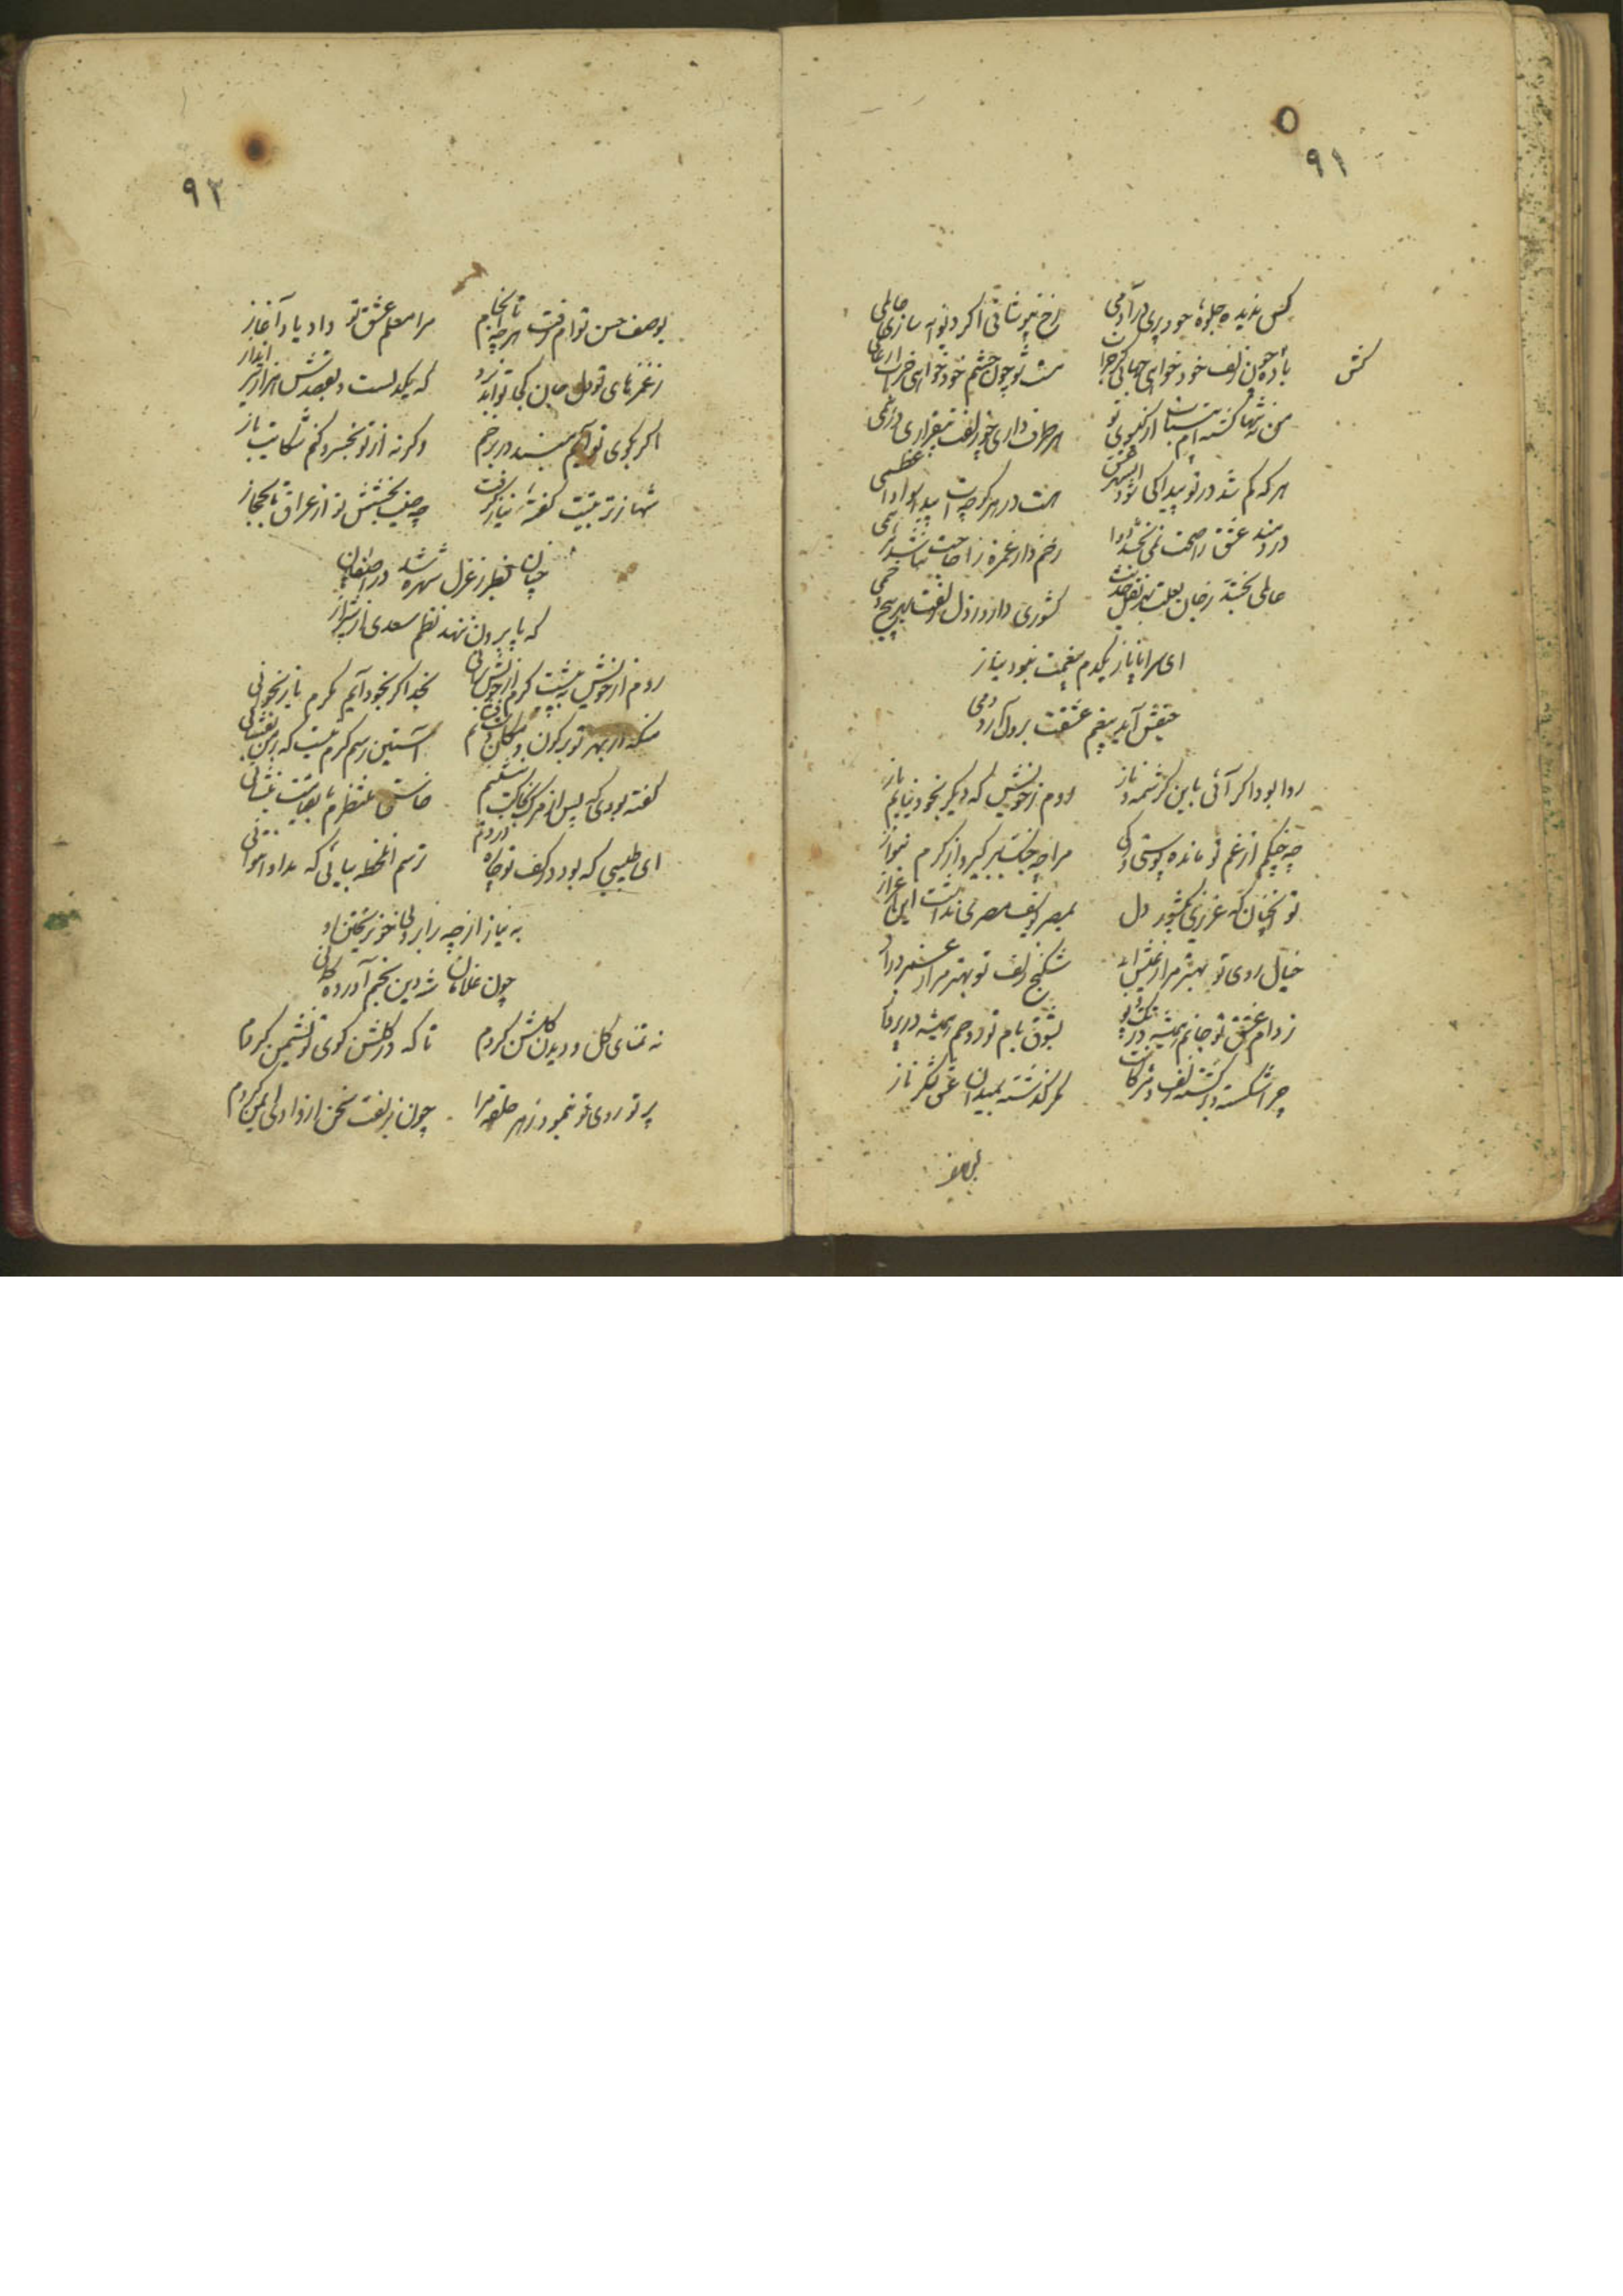 ۹۱
کس ندیده جلوهٔ حور و پری در آدمی
رخ بپوشانی اگر دیوانه سازی عالمی
باده چون زلف خود خواهی جهانی را خراب
مست شو چون چشم خود خواهی
کش
من نه تنها گشته‌ام از کیسوی تو
هر طرف داری چو زلفت بیقراری درهمی
هر که کم شد در تو پیدا کی شود
هست در هر کوچه
دردمند عشق را صحت نمی‌بخشد دوا
زخم دار غمزه را حاجت نباشد مرهمی
عالمی بخشد ز جان لعلت
کشوری دارد ز دل زلفت بهر پیچ و خمی
ای سراپا ناز یکدم بیغمت نبود نیاز
حیفش آید بیغم عشقت برو آرد دمی
روا بود اگر آئی باین کرشمه و ناز
روم ز خویش که دیگر بخود نیایم باز
چو چنگم از غم تو مانده پوستی و رگی
مرا چو چنگ ببر گیر و از کرم بنواز
تو آنچنان که عزیزی بکشور دل
بمصر یوسف مصری نداشت این اعزاز
خیال روی تو بهتر مرا ز عیش ابد
شکنج زلف تو بهتر مرا ز عمر دراز
ز دام عشق تو جانم همیشه در تک و پو
بشوق بام تو روحم همیشه در پرواز
چرا شکسته و برگشته زلف و مژگانت
مگر گذشته بمیدان عشق لشکر ناز
بوصف
۹۲
بوصف حسن توام رفت هر چه تا انجام
مرا معلم عشق تو داد یاد آغاز
ز غمزهای تو دل جان کجا تواند برد
که یکدلست و بقصدش هزار تیر انداز
اگر بکوی تو آیم نبینند در بر خم
وگرنه از تو بخسرو کنم شکایت باز
شها ز تربیتت گفتهٔ نیاز گرفت
چو صیت بخشش تو از عراق تا بحجاز
چنان بطرز غزل شهره شد در اصفاهان
که پا برون ننهد نظم سعدی از شیراز
روم از خویش بشیت گرم از خویش برانی
بخدا گر بخود آیم گرم باز نخوانی
منکه از بهر تو بر کون و مکان دست فشانم
آستین رسم کرم نیست که بر من بفشانی
گفته بودی که پس از مرگ بخاکت بنشینم
خاستی منتظرم تا بقیامت بنشانی
ای طبیبی که بود در کف تو چاره دردم
ترسم آنلحظه بیائی که مداوا نتوانی
به نیاز از چه ز ابرو پی خونریختن او
چون غلامان شه دین بخم آورده کمانی
نه تمنای گل و دیدن گلشن کردم
تا که در گلشن کوی تو نشیمن کردم
پرتو روی تو بنمود ز هر حلقه مرا
چون ز زلفت سخن از وادی ایمن کردم